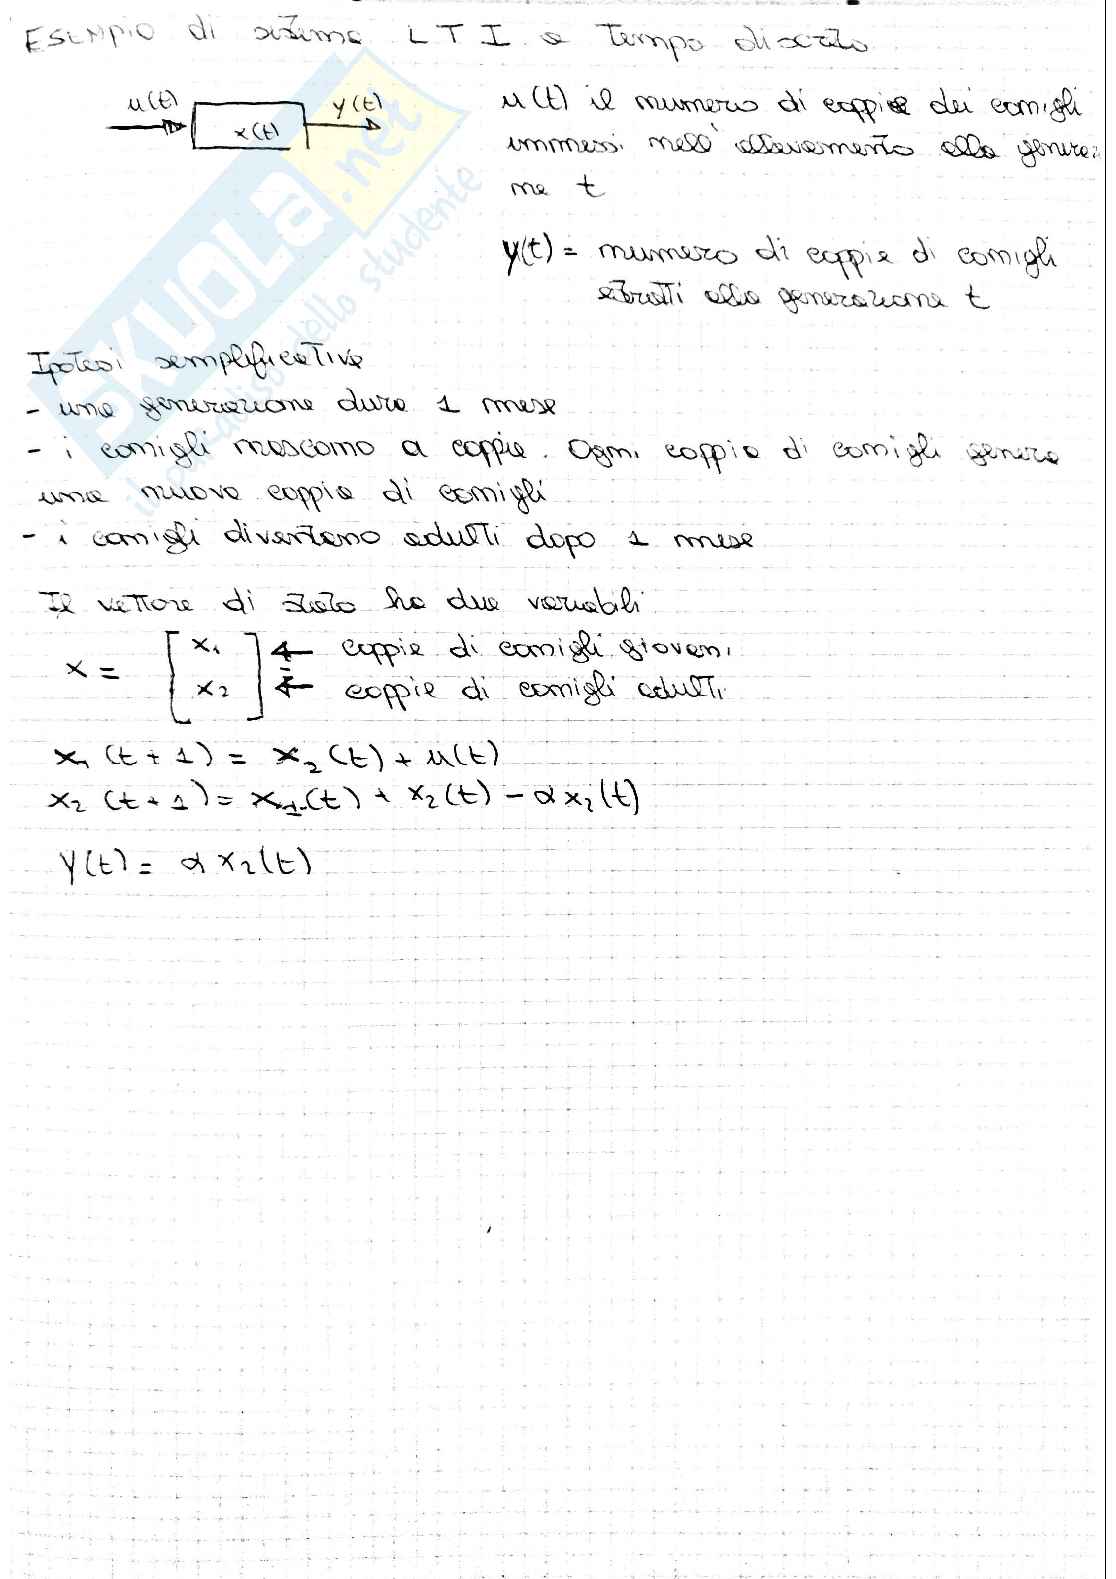 Esempio di sistema LTI a tempo discreto
u(t) x(t) y(t)
u(t) il numero di coppie dei conigli
immessi nell'allevamento alla generazio
ne t
y(t) = numero di coppie di conigli
estratti alla generazione t
Ipotesi semplificative
- una generazione dura 1 mese
- i conigli nascono a coppie. Ogni coppia di conigli genera
una nuova coppia di conigli
- i conigli diventano adulti dopo 1 mese
Il vettore di stato ha due variabili
x = [x₁ ← coppie di conigli giovani
x₂] ← coppie di conigli adulti
x₁ (t+1) = x₂(t) + u(t)
x₂ (t+1) = x₁(t) + x₂(t) - αx₂(t)
y(t) = αx₂(t)
SKUOLA.net
il paradiso dello studente